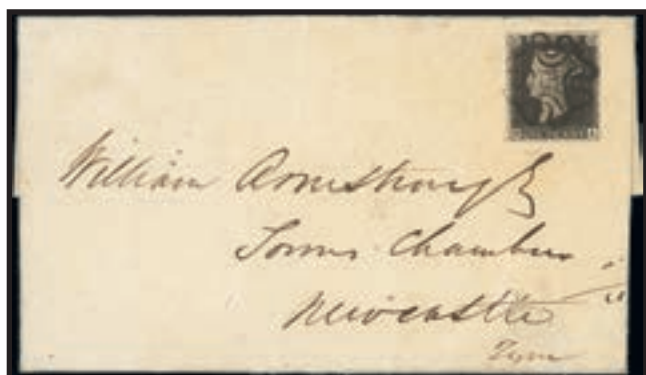 William Armstrong
Towns Chambers
Newcastle
Tyne